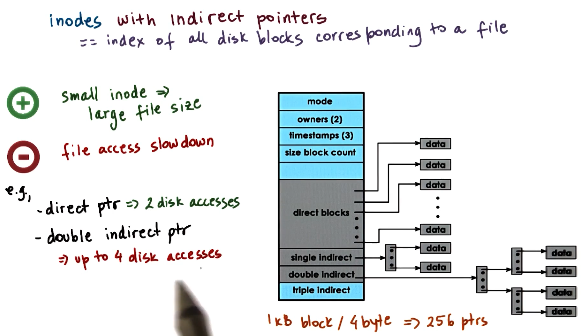 inodes with Indirect pointers
== index of all disk blocks corresponding to a file
+
small inode ⇒
large file size
-
file access slowdown
e.g,
- direct ptr ⇒ 2 disk accesses
- double indirect ptr
⇒ up to 4 disk accesses
mode
owners (2)
timestamps (3)
size block count
direct blocks
single indirect
double indirect
triple indirect
data
data
data
data
data
data
data
data
data
data
1kB block / 4 byte ⇒ 256 ptrs